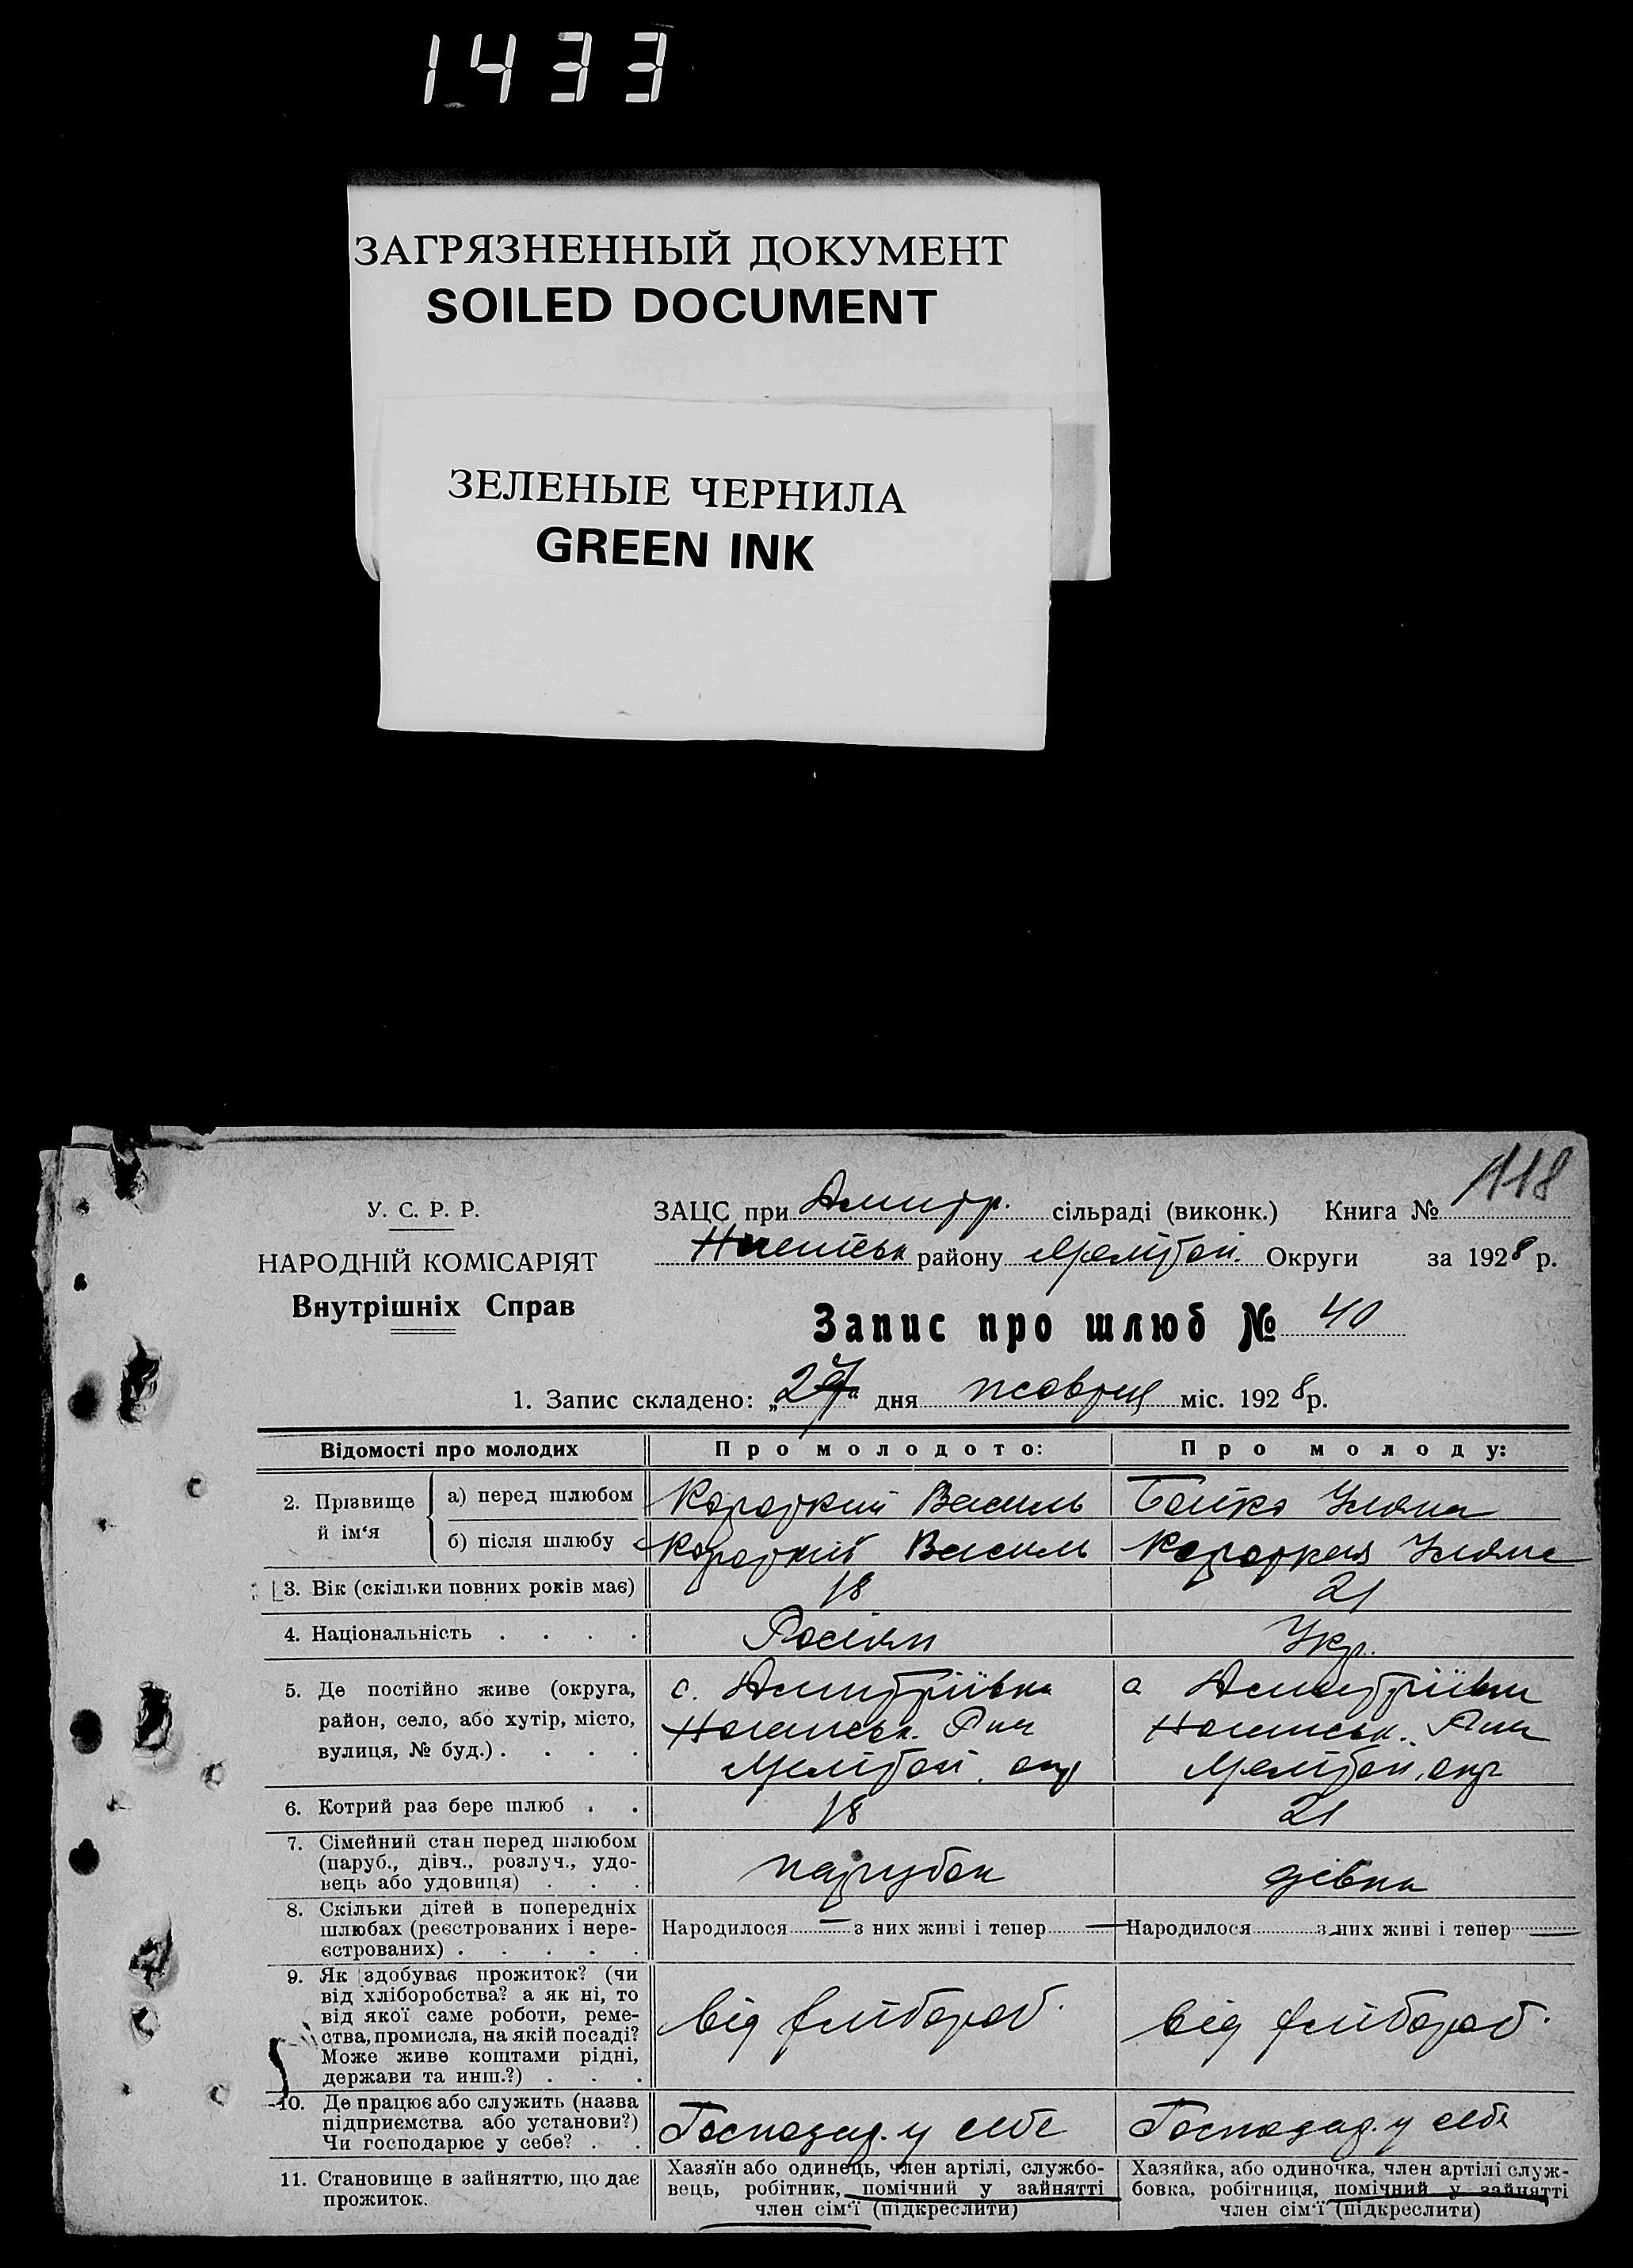 1433
ЗАГРЯЗНЕННЫЙ ДОКУМЕНТ
SOILED DOCUMENT
ЗЕЛЕНЫЕ ЧЕРНИЛА
GREEN INK
118
У. С. Р. Р.
ЗАЦС при Дмитр. сільраді (виконк.) Книга №
НАРОДНІЙ КОМІСАРІЯТ
району Мелітоп. Округи за 1928 р.
Внутрішніх Справ
Запис про шлюб № 40
1. Запис складено: „2 дня жовтня міс. 1928 р.
Відомості про молодих
Про молодого:
Про молоду:
2. Прізвище й ім‘я
а) перед шлюбом
Короткий Василь
Бойко Уляна
б) після шлюбу
Короткий Василь
Короткая Уляна
3. Вік (скільки повних років має)
18
21
4. Національність . . . .
Росіян
Укр.
5. Де постійно живе (округа,
район, село, або хутір, місто,
вулиця, № буд.) . . . .
с. Дмитріївка
Ногайськ. Р-на
Мелітоп. окр
с Дмитріївки
Ногайськ. Р-на
Мелітоп. окр
6. Котрий раз бере шлюб . .
18
21
7. Сімейний стан перед шлюбом
(паруб., дівч., розлуч., удо-
вець або удовиця) . . .
парубок
дівка
8. Скільки дітей в попередніх
шлюбах (реєстрованих і нере-
єстрованих) . . . . .
Народилося — з них живі і тепер —
Народилося з них живі і тепер —
9. Як здобуває прожиток? (чи
від хліборобства? а як ні, то
від якої саме роботи, реме-
ства, промисла, на якій посаді?
Може живе коштами рідні,
держави та инш.?) . . .
від хлібороб.
від хлібороб.
10. Де працює або служить (назва
підприємства або установи?)
Чи господарює у себе? . .
Господар. у себе
Господар. у себе
11. Становище в зайняттю, що дає
прожиток.
Хазяїн або одинець, член артілі, службо-
вець, робітник, помічний у зайнятті
член сім‘ї (підкреслити)
Хазяйка, або одиночка, член артілі служ-
бовка, робітниця, помічний у зайнятті
член сім‘ї (підкреслити)